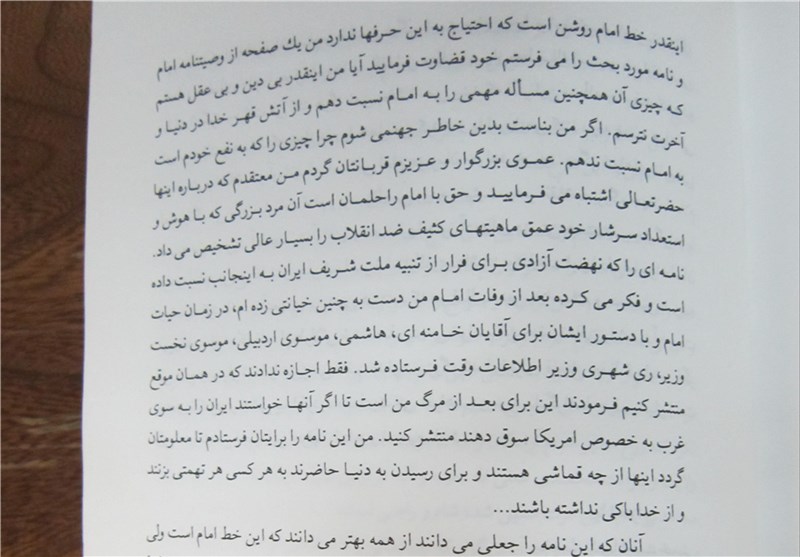 اینقدر خط امام روشن است که احتیاج به این حرفها ندارد من یك صفحه از وصیتنامه امام
و نامه مورد بحث را می فرستم خود قضاوت فرمایید آیا من اینقدر بی دین و بی عقل هستم
که چیزی آن همچنین مسأله مهمی را به امام نسبت دهم و از آتش قهر خدا در دنیا و
آخرت نترسم. اگر من بناست بدین خاطر جهنمی شوم چرا چیزی را که به نفع خودم است
به امام نسبت ندهم. عموی بزرگوار و عزیزم قربانتان گردم من معتقدم که درباره اینها
حضرتعالی اشتباه می فرمایید و حق با امام راحلمان است آن مرد بزرگی که با هوش و
استعداد سرشار خود عمق ماهیتهای کثیف ضد انقلاب را بسیار عالی تشخیص می داد.
نامه ای را که نهضت آزادی برای فرار از تنبیه ملت شریف ایران به اینجانب نسبت داده
است و فکر می کرده بعد از وفات امام من دست به چنین خیانتی زده ام، در زمان حیات
امام و با دستور ایشان برای آقایان خامنه ای، هاشمی، موسوی اردبیلی، موسوی نخست
وزیر، ری شهری وزیر اطلاعات وقت فرستاده شد. فقط اجازه ندادند که در همان موقع
منتشر کنیم فرمودند این برای بعد از مرگ من است تا اگر آنها خواستند ایران را به سوی
غرب به خصوص امریکا سوق دهند منتشر کنید. من این نامه را برایتان فرستادم تا معلومتان
گردد اینها از چه قماشی هستند و برای رسیدن به دنیا حاضرند به هر کسی هر تهمتی بزنند
و از خدا باکی نداشته باشند...
آنان که این نامه را جعلی می دانند از همه بهتر می دانند که این خط امام است ولی